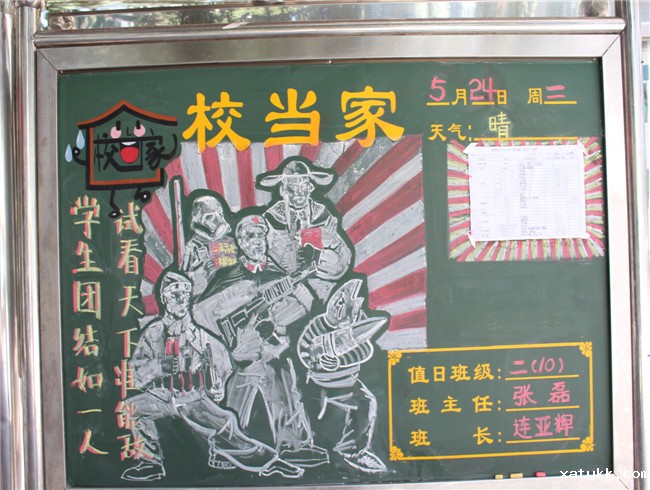 校当家
5月24日 周二
天气:晴
校家
学生团结如一人
试看天下谁能敌
值日班级:二(10)
班主任:张磊
班长:连亚辉
xatukk.com